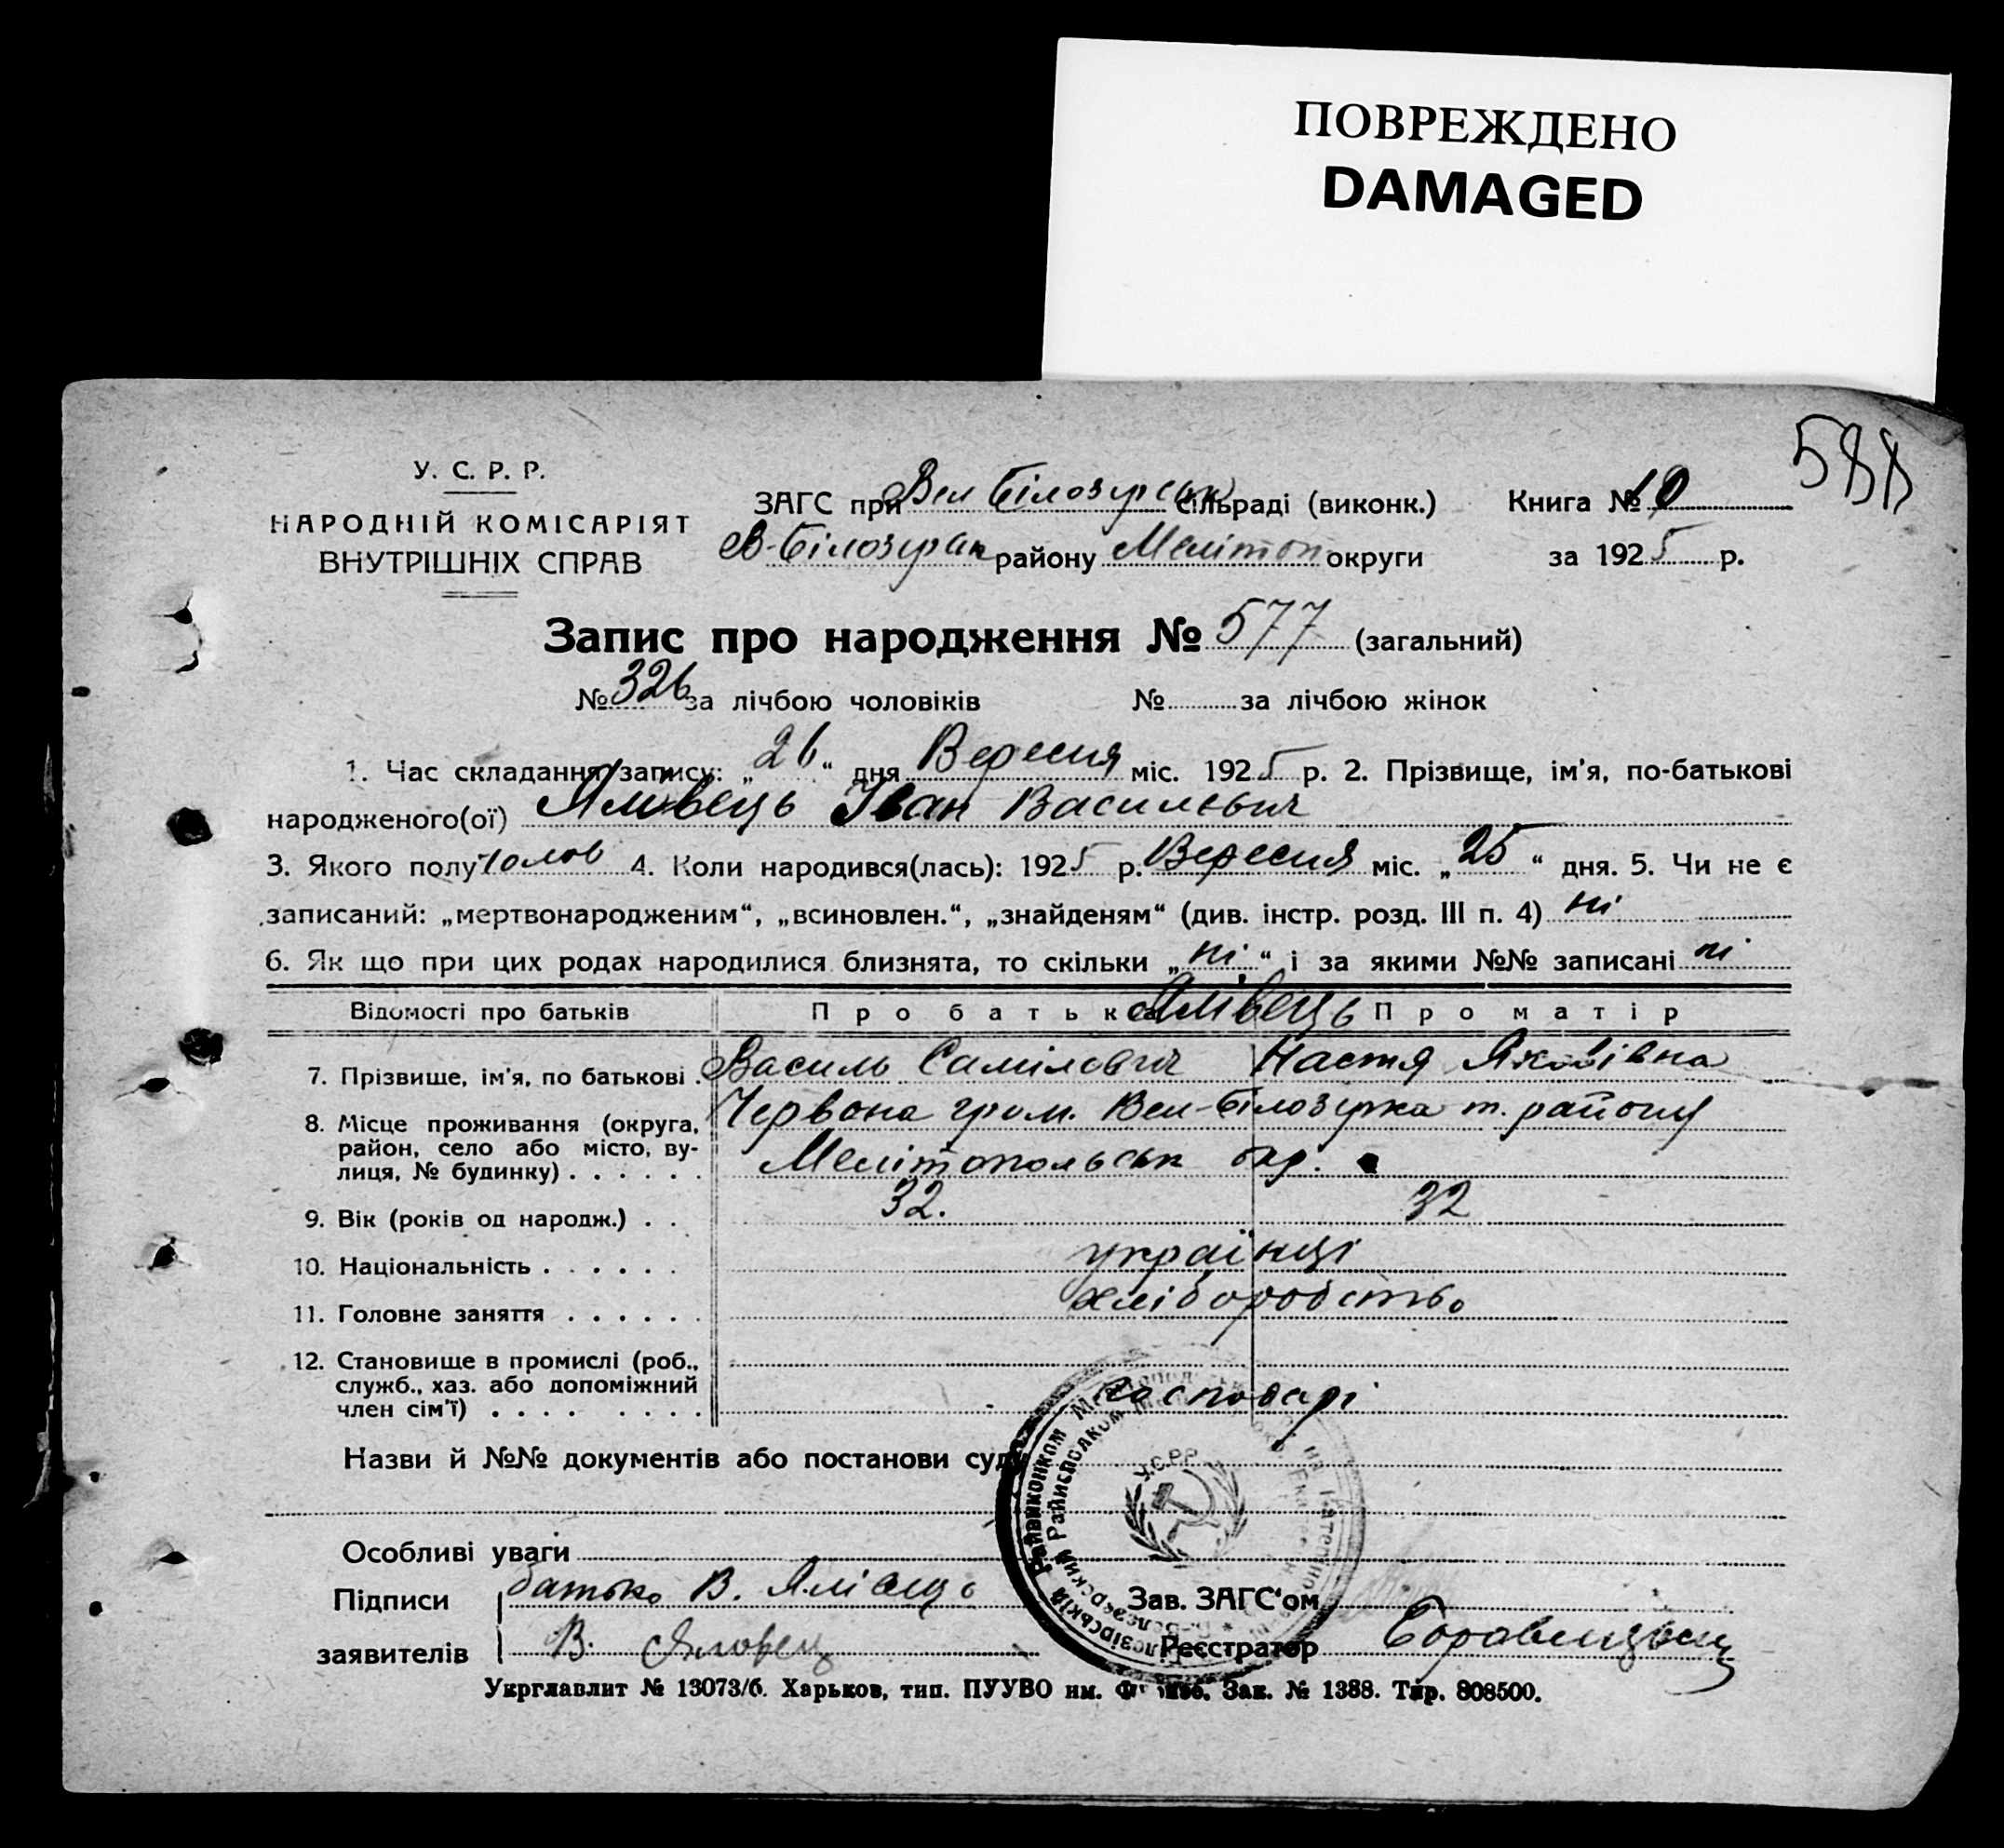 ПОВРЕЖДЕНО
DAMAGED
588
У. С. Р. Р.
НАРОДНІЙ КОМІСАРІЯТ
ВНУТРІШНІХ СПРАВ
ЗАГС при Вел Білозирськ сільраді (виконк.)
В-Білозирськ району Мелітоп округи
Книга № 10
за 1925 р.
Запис про народження № 577 (загальний)
№ 326 за лічбою чоловіків № за лічбою жінок
1. Час складання запису: „26“ дня Вересня міс. 1925 р. 2. Прізвище, ім'я, по-батькові
народженого(ої) Ялівець Іван Васильович
3. Якого полу чолов 4. Коли народився(лась): 1925 р. Вересня міс. „25“ дня. 5. Чи не є
записаний: „мертвонародженим“, „всиновлен.“, „знайденям“ (див. інстр. розд. III п. 4) ні
6. Як що при цих родах народилися близнята, то скільки „ні“ і за якими №№ записані ні
Відомості про батьків Про батька Ялівець Про матір
7. Прізвище, ім'я, по батькові . Василь Самілович Настя Яковівна
8. Місце проживання (округа, район, село або місто, вулиця, № будинку) . . . . . . Червона гром. Вел-Білозирка т. району
Мелітопольськ окр.
9. Вік (років од народж.) . . 32. 32
10. Національність . . . . . . українці
11. Головне заняття . . . . . . хліборобство
12. Становище в промислі (роб., служб., хаз. або допоміжний член сім'ї) . . . . . . . . господарі
Назви й №№ документів або постанови суду
Особливі уваги
Підписи батько В. Ялівець Зав. ЗАГС'ом
заявителів В. Реєстратор
У.С.Р.Р.
Укрглавлит № 13073/б. Харьков, тип. ПУУВО им. Фрунзе. Зак. № 1388. Тир. 808500.